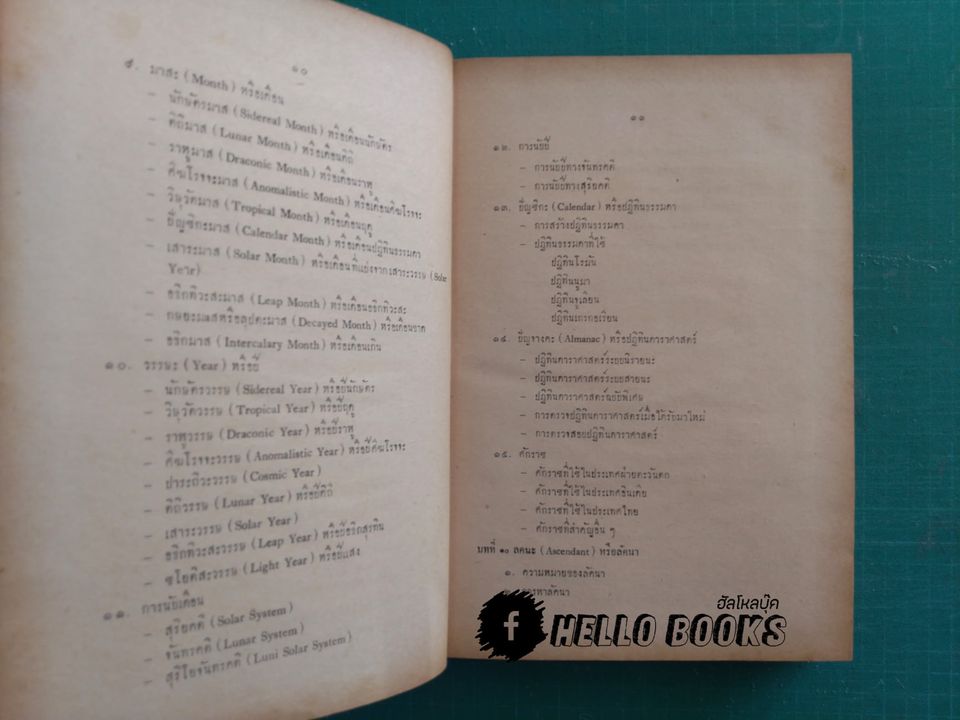 ๑๐
๙. มาสะ (Month) หรือเดือน
– นักษัตรมาส (Sidereal Month) หรือเดือนนักษัตร
– ดิถีมาส (Lunar Month) หรือเดือนดิถี
– ราหูมาส (Draconic Month) หรือเดือนราหู
– ศีฆโรจจะมาส (Anomalistic Month) หรือเดือนศีฆโรจจะ
– วิษุวัตมาส (Tropical Month) หรือเดือนฤดู
– ยี่ญชิกะมาส (Calendar Month) หรือเดือนปฏิทินธรรมดา
– เสาระมาส (Solar Month) หรือเดือนที่แบ่งจากเสาระวรรษ (Solar
Year)
– อธิกทิวะสะมาส (Leap Month) หรือเดือนอธิกทิวะสะ
– กษยะมาสหรือลุปตะมาส (Decayed Month) หรือเดือนขาด
– อธิกมาส (Intercalary Month) หรือเดือนเกิน
๑๐. วรรษะ (Year) หรือปี
– นักษัตรวรรษ (Sidereal Year) หรือปีนักษัตร
– วิษุวัตวรรษ (Tropical Year) หรือปีฤดู
– ราหูวรรษ (Draconic Year) หรือปีราหู
– ศีฆโรจจะวรรษ (Anomalistic Year) หรือปีศีฆโรจจะ
– ปาระถีวะวรรษ (Cosmic Year)
– ดิถีวรรษ (Lunar Year) หรือปีดิถี
– เสาระวรรษ (Solar Year)
– อธิกทิวะสะวรรษ (Leap Year) หรือปีอธิกสุรทิน
– ชโยติสะวรรษ (Light Year) หรือปีแสง
๑๑. การนับเดือน
– สุริยคติ (Solar System)
– จันทรคติ (Lunar System)
– สุริโยจันทรคติ (Luni Solar System)
๑๑
๑๒. การนับปี
– การนับปีทางจันทรคติ
– การนับปีทางสุริยคติ
๑๓. ยี่ญชิกะ (Calendar) หรือปฏิทินธรรมดา
– การสร้างปฏิทินธรรมดา
– ปฏิทินธรรมดาที่ใช้
ปฏิทินโรมัน
ปฏิทินนูมา
ปฏิทินจูเลียน
ปฏิทินเกรกอเรียน
๑๔. ปัญจางคะ (Almanac) หรือปฏิทินดาราศาสตร์
– ปฏิทินดาราศาสตร์ระบบนิรายนะ
– ปฏิทินดาราศาสตร์ระบบสายนะ
– ปฏิทินดาราศาสตร์ฉบับพิเศษ
– การตรวจปฏิทินดาราศาสตร์เมื่อได้รับมาใหม่
– การตรวจสอบปฏิทินดาราศาสตร์
๑๕. ศักราช
– ศักราชที่ใช้ในประเทศฝ่ายตะวันตก
– ศักราชที่ใช้ในประเทศอินเดีย
– ศักราชที่ใช้ในประเทศไทย
– ศักราชที่สำคัญอื่น ๆ
บทที่ ๑๐ ลัคนะ (Ascendant) หรือลัคนา
๑. ความหมายของลัคนา
การหาลัคนา
ฮัลโหลบุ๊ค
f HELLO BOOKS